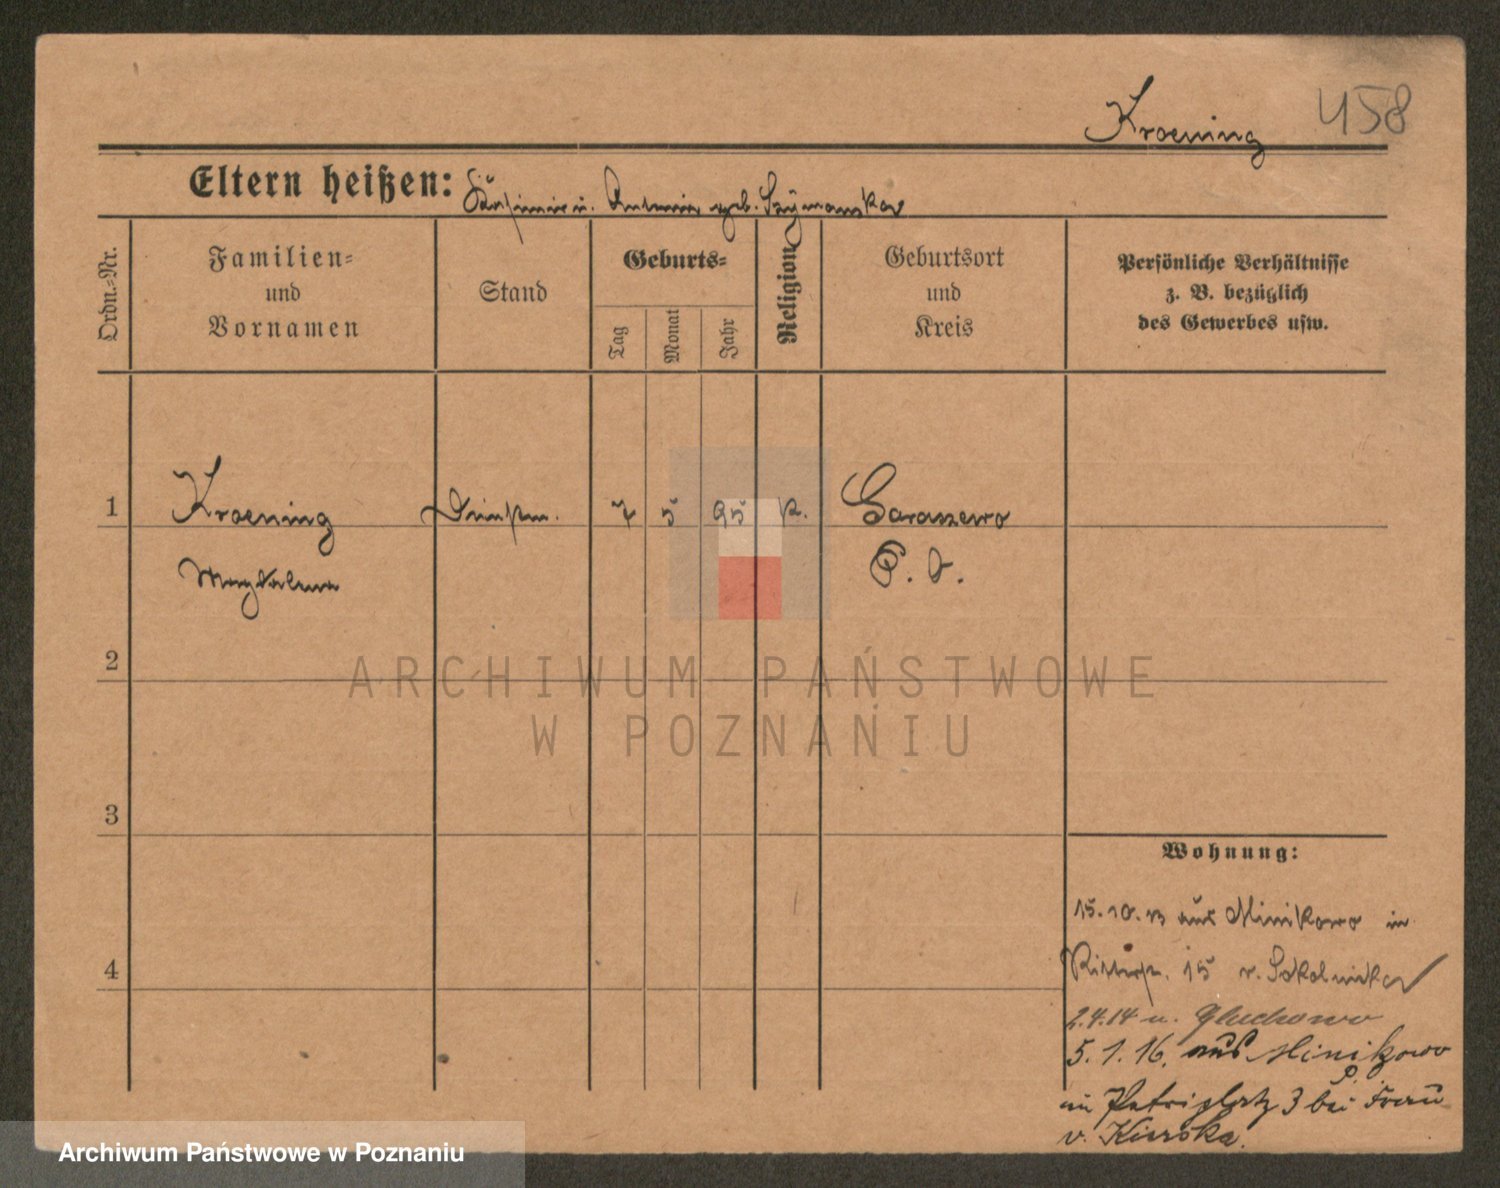 Kroening 458
Eltern heißen: Kasimir u. Antonie geb. Szymanska
Ordn.-Nr.
Familien-
und
Vornamen
Stand
Geburts-
Tag
Monat
Jahr
Religion
Geburtsort
und
Kreis
Persönliche Verhältnisse
z. B. bezüglich
des Gewerbes usw.
1 Kroening Dienstm. 7 5 95 k. Garaszewo
Magdalena P. O.
2
ARCHIWUM PAŃSTWOWE
W POZNANIU
3
Wohnung:
15.10.13 aus Minikowo in
Ritterstr. 15 v. Sokolnicka
4
2.4.14 n. Gluchowo
5.1.16. aus Minikowo
in Petriplatz 3 bei Frau
v. Kierska.
Archiwum Państwowe w Poznaniu